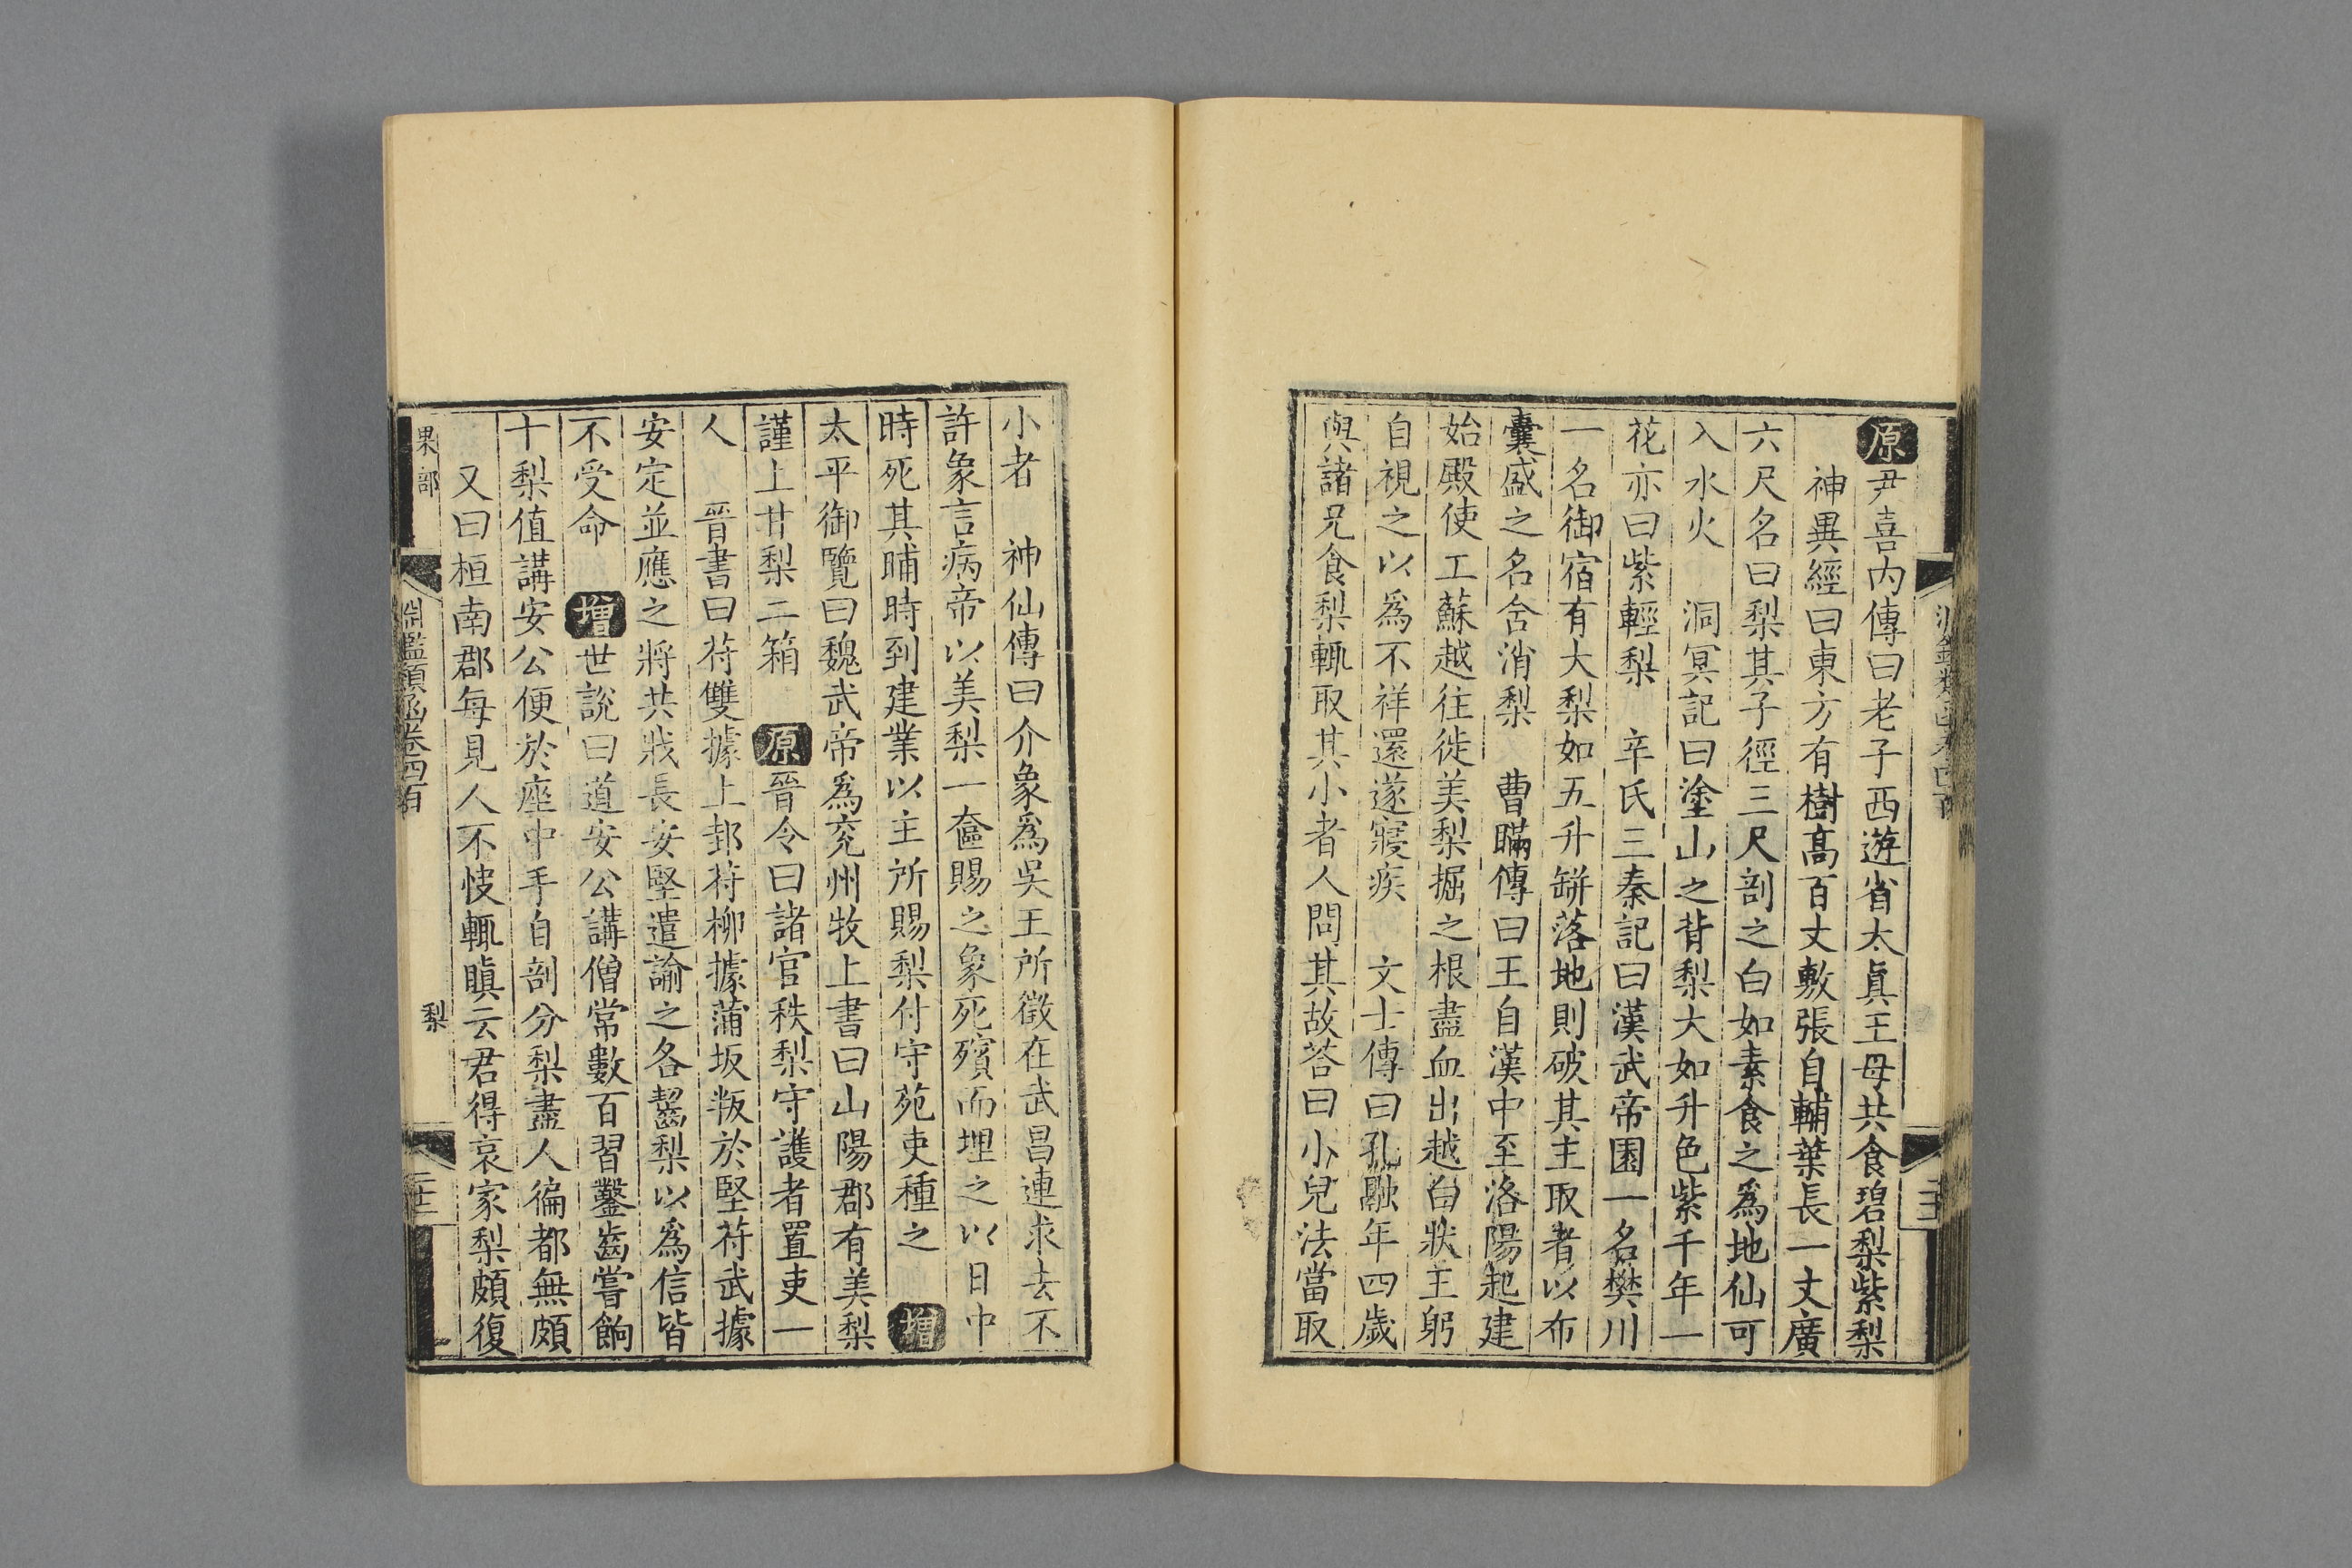 原尹喜内傳曰老子西遊省太眞王母共食碧梨紫梨
神異經曰東方有樹高百丈敷張自輔葉長一丈廣
六尺名曰梨其子徑三尺剖之白如素食之爲地仙可
入水火　洞冥記曰塗山之背梨大如升色紫千年一
花亦曰紫輕梨　辛氏三秦記曰漢武帝園一名樊川
一名御宿有大梨如五升缾落地則破其主取者以布
囊盛之名含消梨　曹瞞傳曰王自漢中至洛陽起建
始殿使工蘇越往徙美梨掘之根盡血出越白狀王躬
自視之以爲不祥還遂寢疾　文士傳曰孔融年四歲
與諸兄食梨輒取其小者人問其故荅曰小兒法當取
小者　神仙傳曰介象爲吳王所徵在武昌連求去不
許象言病帝以美梨一奩賜之象死殯而埋之以日中
時死其晡時到建業以主所賜梨付守苑吏種之　增
太平御覽曰魏武帝爲兖州牧上書曰山陽郡有美梨
謹上甘梨二箱　原晉令曰諸官秩梨守護者置吏一
人　晉書曰苻雙據上邽苻柳據蒲坂叛於堅苻武據
安定並應之將共戕長安堅遣諭之各齧梨以爲信皆
不受命　增世說曰道安公講僧常數百習鑿齒嘗餉
十梨值講安公便於座中手自剖分梨盡人徧都無頗
又曰桓南郡每見人不快輒瞋云君得哀家梨頗復
果部
淵鑑類函卷四百
梨